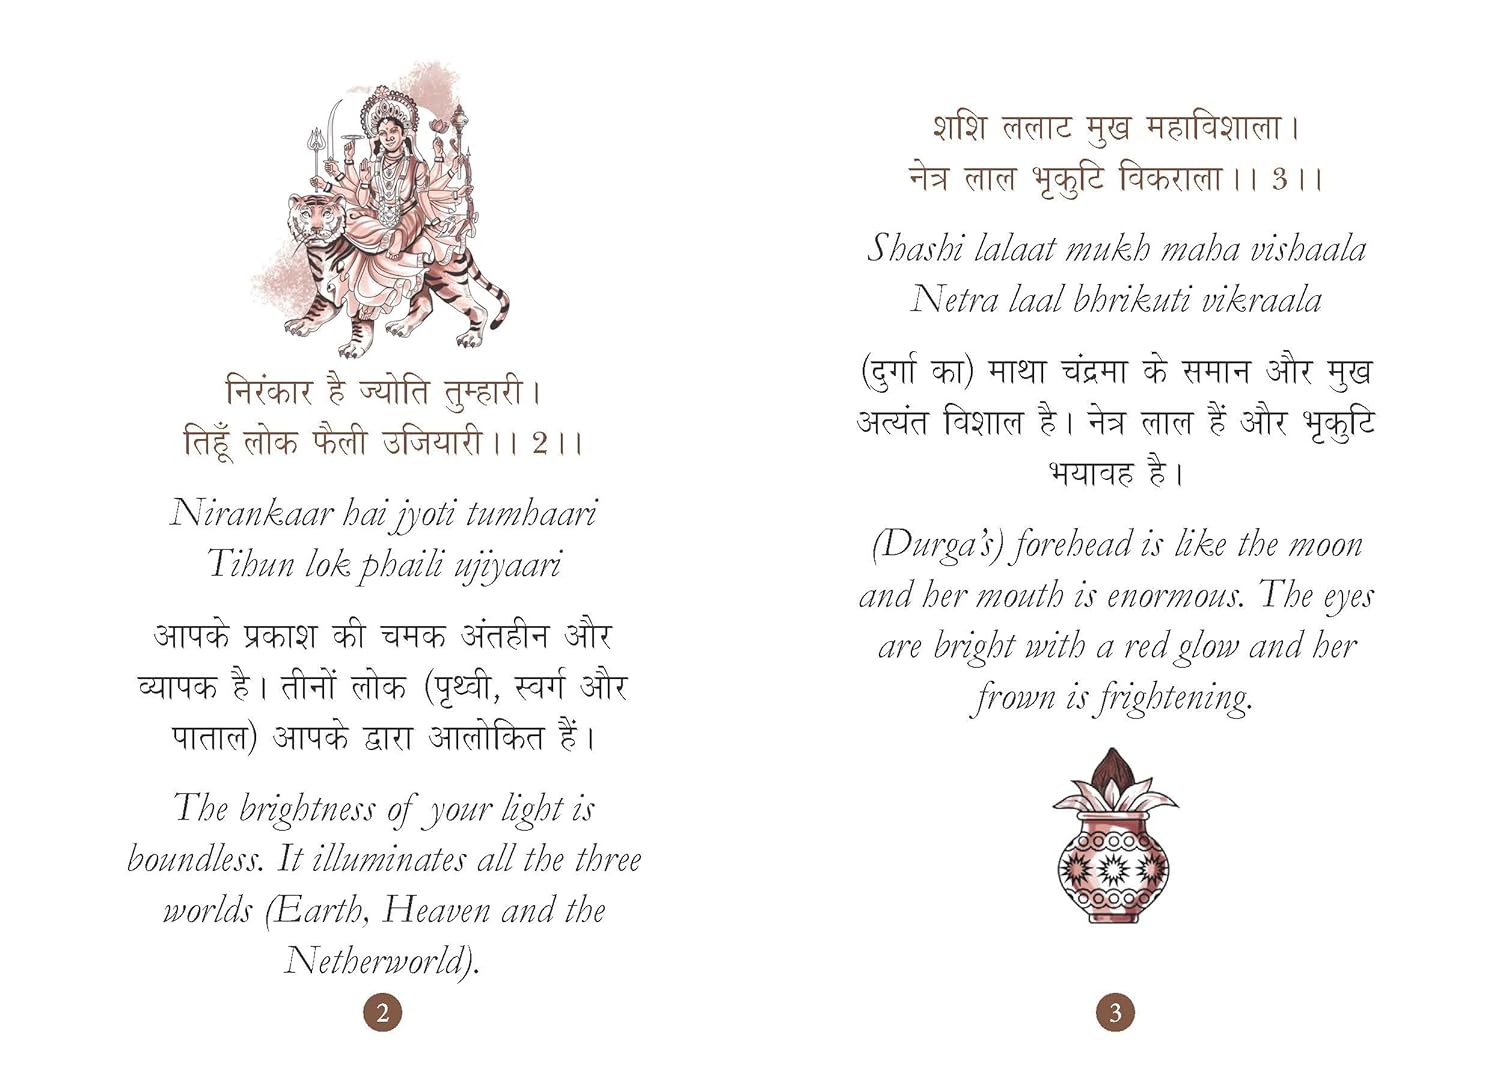 निरंकार है ज्योति तुम्हारी।
तिहूँ लोक फैली उजियारी।। 2।।
Nirankaar hai jyoti tumhaari
Tihun lok phaili ujiyaari
आपके प्रकाश की चमक अंतहीन और
व्यापक है। तीनों लोक (पृथ्वी, स्वर्ग और
पाताल) आपके द्वारा आलोकित हैं।
The brightness of your light is
boundless. It illuminates all the three
worlds (Earth, Heaven and the
Netherworld).
2
शशि ललाट मुख महाविशाला।
नेत्र लाल भृकुटि विकराला।। 3।।
Shashi lalaat mukh maha vishaala
Netra laal bhrikuti vikraala
(दुर्गा का) माथा चंद्रमा के समान और मुख
अत्यंत विशाल है। नेत्र लाल हैं और भृकुटि
भयावह है।
(Durga's) forehead is like the moon
and her mouth is enormous. The eyes
are bright with a red glow and her
frown is frightening.
3